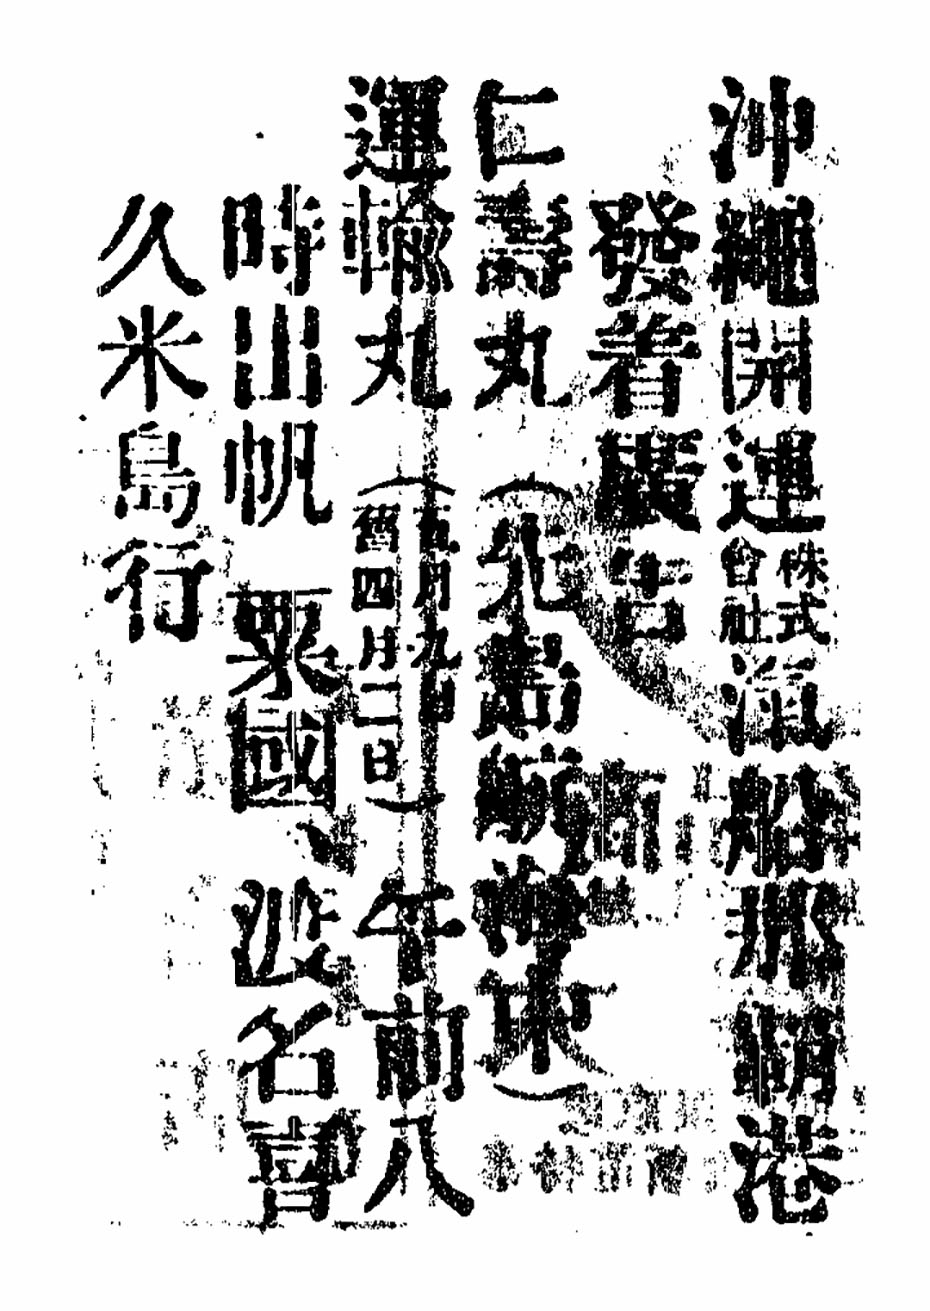 沖繩開運株式會社滊船那覇港
發着廣告
仁壽丸（大島航海中）
運輸丸（五月九日舊四月二日）午前八
時出帆 粟國、渡名喜
久米島行